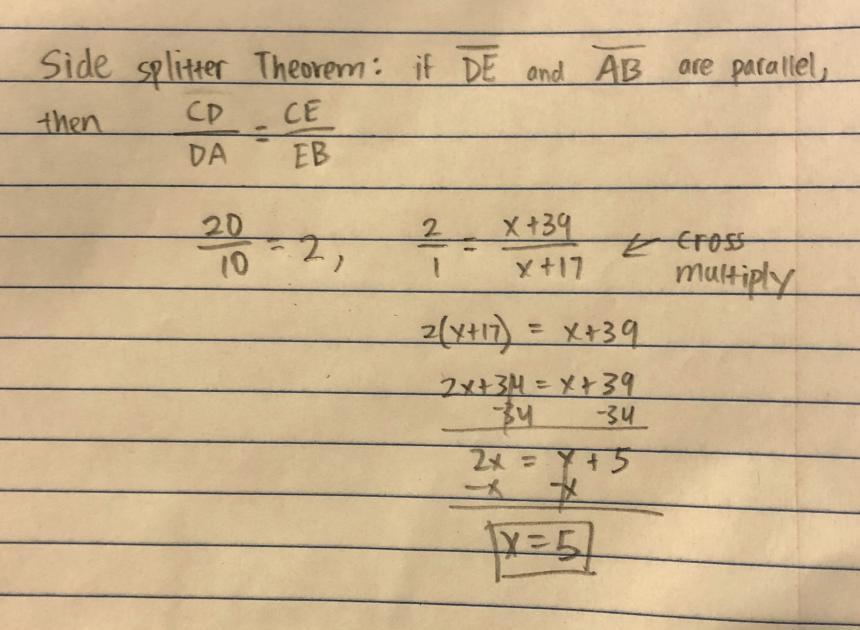 Side splitter Theorem: if DE and AB are parallel,
then CD/DA = CE/EB
20/10 = 2, 2/1 = x+39/x+17 ← cross multiply
2(x+17) = x+39
2x+34 = x+39
-34 -34
2x = x + 5
-x -x
x = 5